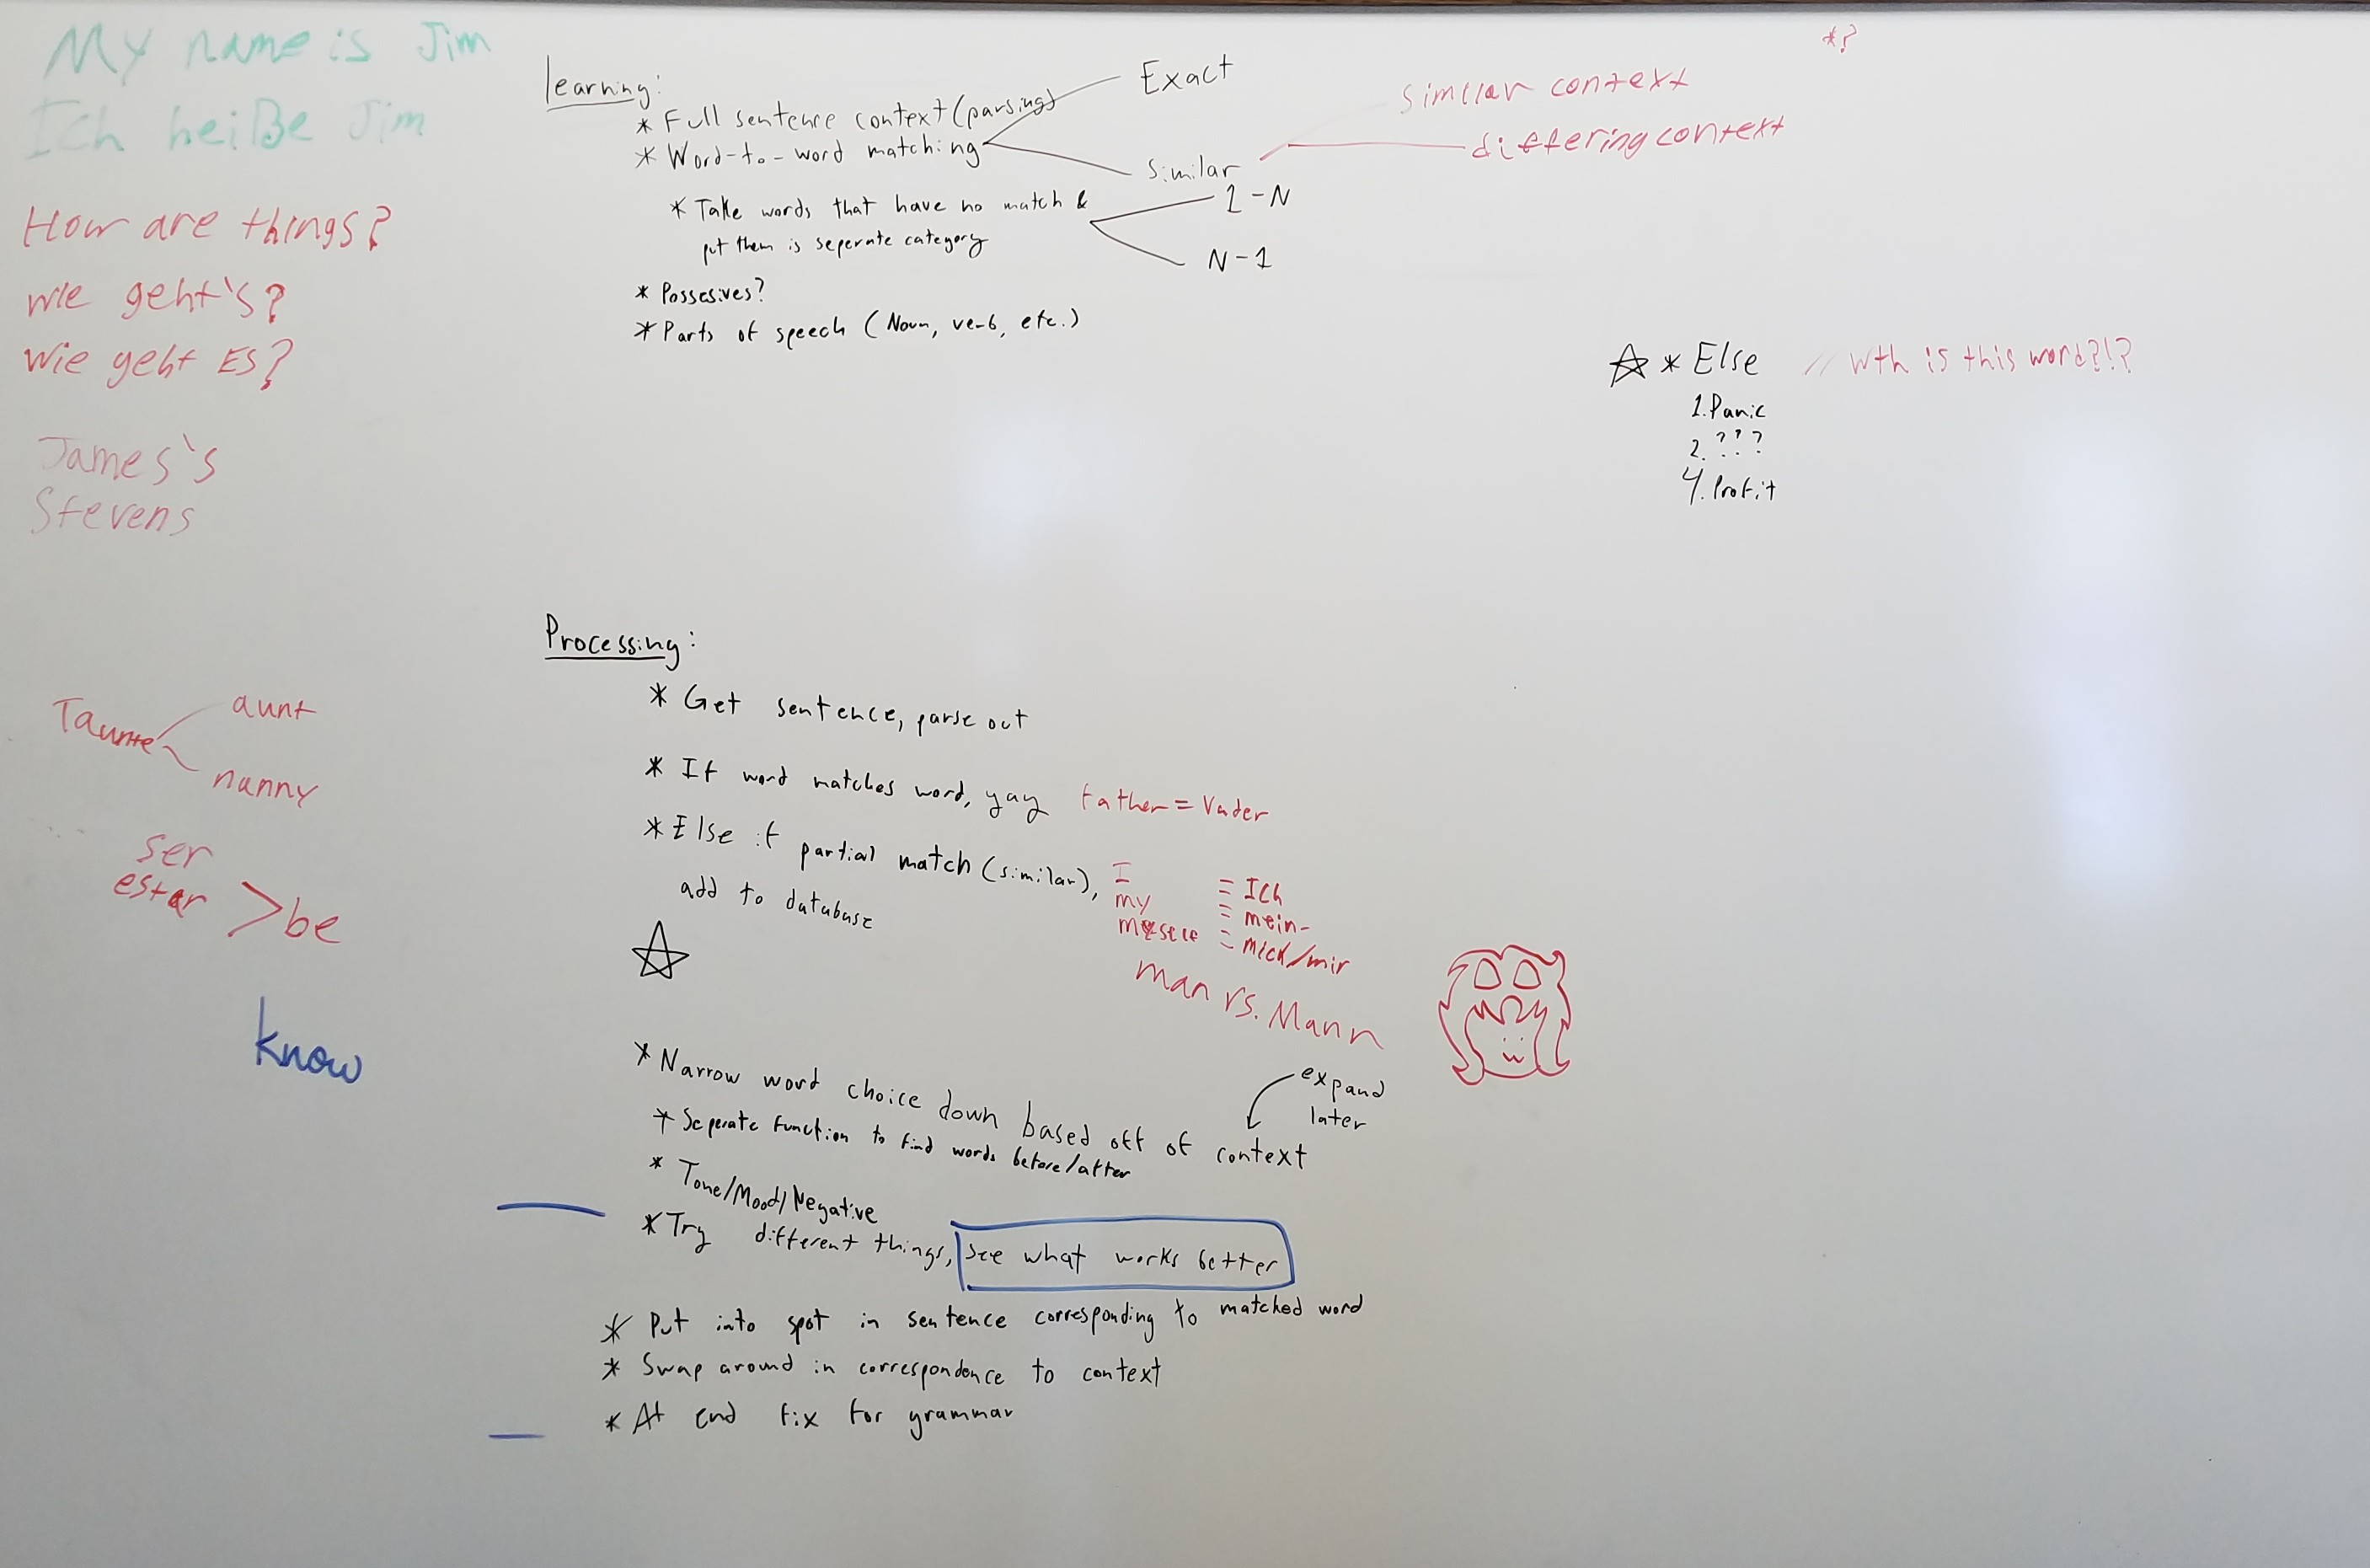 My name is Jim
Ich heiße Jim
How are things?
wie geht's?
wie geht ES?
James's
Stevens
Taunte
aunt
nanny
ser
estar > be
know
*?
learning:
* Full sentence context (parsing)
* Word-to-word matching
Exact
Similar
similar context
differing context
* Take words that have no match &
put them is seperate category
1-N
N-1
* Possesives?
* Parts of speech (Noun, verb, etc.)
* Else // wth is this word?!?
1. Panic
2. ???
4. Profit
Processing:
* Get sentence, parse out
* If word matches word, yay father = Vader
* Else if partial match (similar),
add to database
I = Ich
my = mein-
myself = mich/mir
man vs. Mann
* Narrow word choice down based off of context
expand
later
* Seperate function to find words before/after
* Tone/Mood/Negative
* Try different things, see what works better
* Put into spot in sentence corresponding to matched word
* Swap around in correspondence to context
* At end fix for grammar